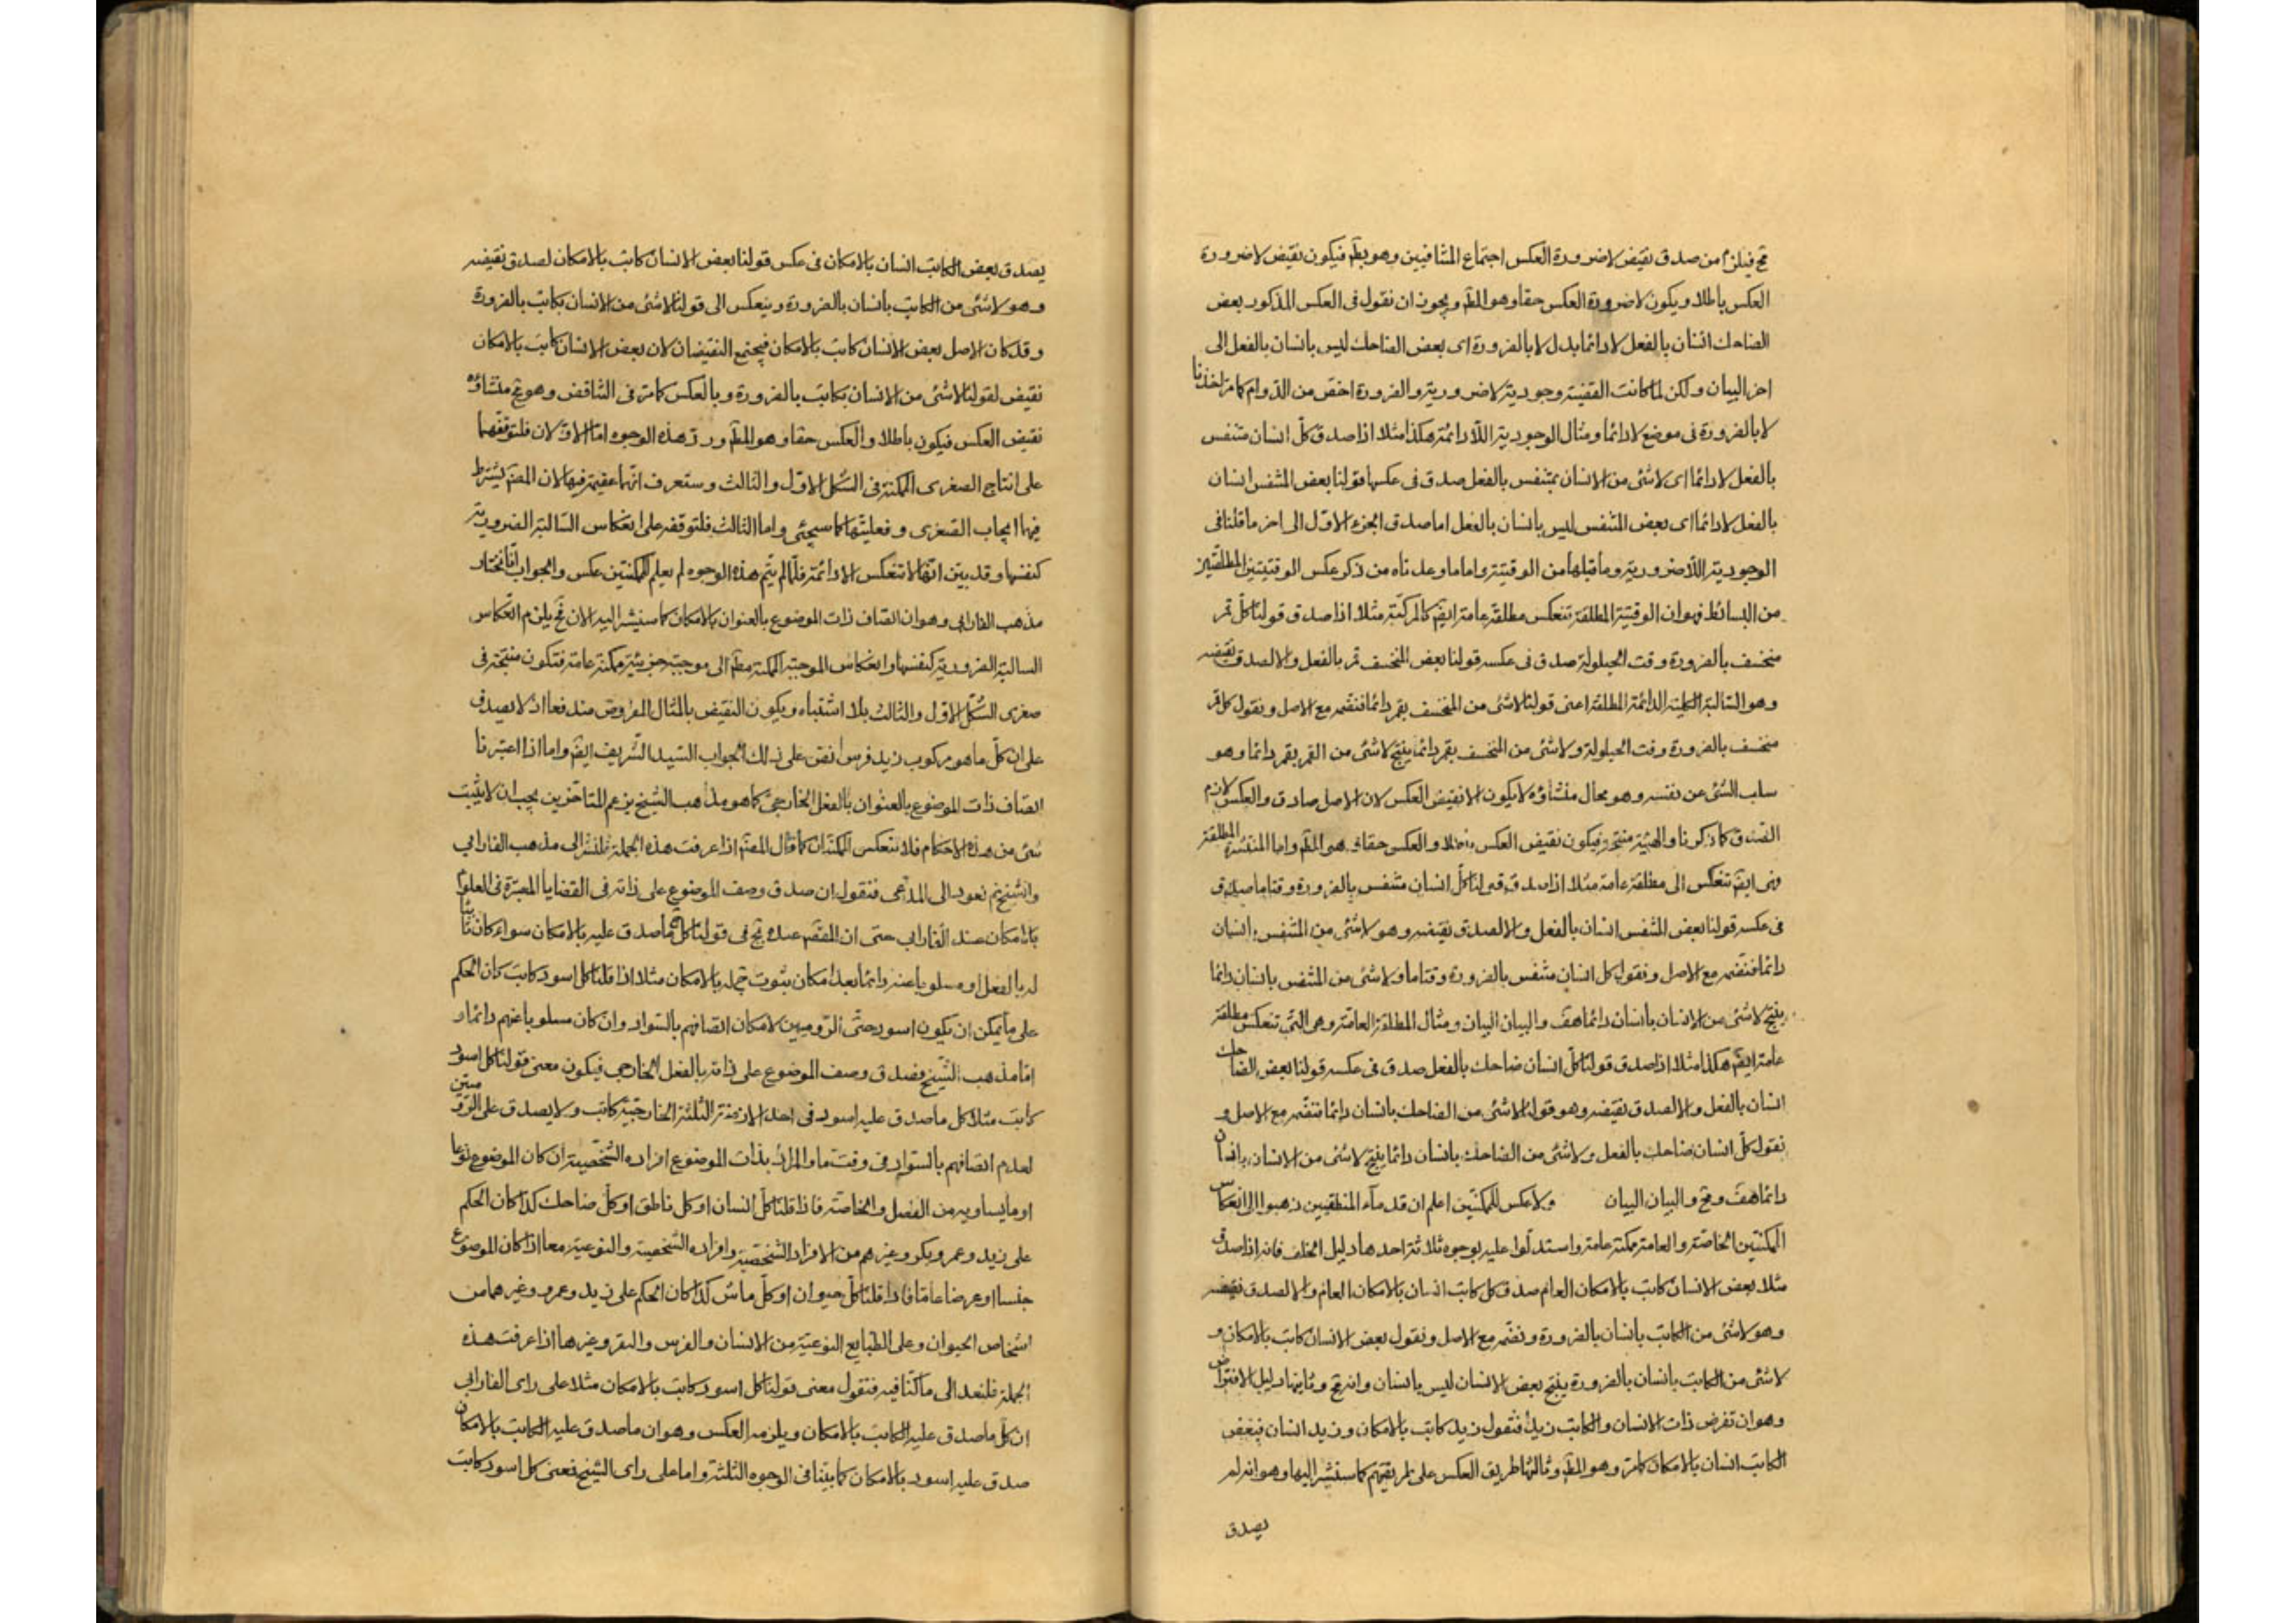 مح فيلزم من صدق نقيض لاضرورة العكس اجتماع المتنافيين وهو بط فيكون نقيض لاضرورة
العكس باطلا ويكون لاضرورة العكس حقا وهو المط ويجوز ان نقول فى العكس المذكور بعض
الضاحك انسان بالفعل لا دائما بدل لا بالضرورة اى بعض الضاحك ليس بانسان بالفعل الى
اخر البيان ولكن لما كانت القضية وجودية لاضرورية والضرورة اخص من الدوام كما مر اخذنا
لا بالضرورة فى موضع لا دائما ومثال الوجودية اللادائمة هكذا مثلا اذا صدق كل انسان متنفس
بالفعل لا دائما اى لا شئ من الانسان بمتنفس بالفعل صدق فى عكسها قولنا بعض المتنفس انسان
بالفعل لا دائما اى بعض المتنفس ليس بانسان بالفعل اما صدق الجزء الاول الى اخر ما قلنا فى
الوجودية اللاضرورية وما قبلها من الوقتية واما ما وعدناه من ذكر عكس الوقتيتين المطلقتين
من البسائط فهو ان الوقتية المطلقة تنعكس مطلقة عامة ايض كالمركبة مثلا اذا صدق قولنا كل قمر
منخسف بالضرورة وقت الحيلولة صدق فى عكسه قولنا بعض المنخسف قمر بالفعل والا لصدق نقيضه
وهو السالبة الكلية الدائمة المطلقة اعنى قولنا لا شئ من المنخسف بقمر دائما فنضمه مع الاصل ونقول كل قمر
منخسف بالضرورة وقت الحيلولة ولا شئ من المنخسف بقمر دائما ينتج لا شئ من القمر بقمر دائما وهو
سلب الشئ عن نفسه وهو محال منشاؤه لا يكون الا نقيض العكس لان الاصل صادق والعكس لازم
الصدق كما ذكرنا والهيئة منتجة فيكون نقيض العكس باطلا والعكس حقا وهو المط واما المنتشرة المطلقة
فهى ايض تنعكس الى مطلقة عامة مثلا اذا صدق قولنا كل انسان متنفس بالضرورة وقتا ما صدق
فى عكسه قولنا بعض المتنفس انسان بالفعل والا لصدق نقيضه وهو لا شئ من المتنفس بانسان
دائما فنضمه مع الاصل ونقول كل انسان متنفس بالضرورة وقتا ما ولا شئ من المتنفس بانسان دائما
ينتج لا شئ من الانسان بانسان دائما هف والبيان البيان ومثال المطلقة العامة وهى التى تنعكس مطلقة
عامة ايض هكذا مثلا اذا صدق قولنا كل انسان ضاحك بالفعل صدق فى عكسه قولنا بعض الضاحك
انسان بالفعل والا لصدق نقيضه وهو قولنا لا شئ من الضاحك بانسان دائما فنضمه مع الاصل و
نقول كل انسان ضاحك بالفعل ولا شئ من الضاحك بانسان دائما ينتج لا شئ من الانسان بانسان
دائما هف ومح والبيان البيان ولا عكس للممكنتين اعلم ان قدماء المنطقيين ذهبوا الى انعكاس
الممكنتين الخاصة والعامة ممكنة عامة واستدلوا عليه بوجوه ثلاثة احدها دليل الخلف فانه اذا صدق
مثلا بعض الانسان كاتب بالامكان العام صدق كل كاتب انسان بالامكان العام والا لصدق نقيضه
وهو لا شئ من الكاتب بانسان بالضرورة ونضمه مع الاصل ونقول بعض الانسان كاتب بالامكان و
لا شئ من الكاتب بانسان بالضرورة ينتج بعض الانسان ليس بانسان وانه مح وثانيها دليل الافتراض
وهو ان تفرض ذات الانسان والكاتب زيدا فنقول زيد كاتب بالامكان وزيد انسان فبعض
الكاتب انسان بالامكان كامر وهو المط وثالثها طريق العكس على طريقتهم كما سنشير اليها وهو انه لم
يصدق
يصدق بعض الكاتب انسان بالامكان فى عكس قولنا بعض الانسان كاتب بالامكان لصدق نقيضه
وهو لا شئ من الكاتب بانسان بالضرورة وينعكس الى قولنا لا شئ من الانسان بكاتب بالضرورة
وقد كان الاصل بعض الانسان كاتب بالامكان فيجتمع النقيضان لان بعض الانسان كاتب بالامكان
نقيض لقولنا لا شئ من الانسان بكاتب بالضرورة وبالعكس كما مر فى التناقض وهو مح منشاؤه
نقيض العكس فيكون باطلا والعكس حقا وهو المط ورد هذه الوجوه اما الاولان فلتوقفهما
على انتاج الصغرى الممكنة فى الشكل الاول والثالث وستعرف انها عقيمة فيها لان المص يشترط
فيها ايجاب الصغرى وفعليتها كما سيجئ واما الثالث فلتوقفه على انعكاس السالبة الضرورية
كنفسها وقد بين انها لا تنعكس الا دائمة فلما لم يتم هذه الوجوه لم يعلم للممكنتين عكس والجواب انا نختار
مذهب الفارابى وهو ان اتصاف ذات الموضوع بالعنوان بالامكان كما سنشير اليه الان فح يلزم انعكاس
السالبة الضرورية كنفسها وانعكاس الموجبة الممكنة مط الى موجبة جزئية ممكنة عامة فتكون منتجة فى
صغرى الشكل الاول والثالث بلا اشتباه ويكون النقيض بالمثال المفروض مندفعا اذ لا يصدق
على ان كل ما هو مركوب زيد فرس نص على ذلك الجواب السيد الشريف ايض واما اذا اعتبرنا
اتصاف ذات الموضوع بالعنوان بالفعل الخارجى كما هو مذهب الشيخ بزعم المتاخرين يجب ان لا يثبت
شئ من هذه الاحكام فلا تنعكس الممكنتان كما قال المص اذا عرفت هذه الجملة فلنشر الى مذهب الفارابى
والشيخ ثم نعود الى المدعى فنقول ان صدق وصف الموضوع على ذاته فى القضايا المعتبرة فى العلوم
بالامكان عند الفارابى حتى ان المفهوم عنده ج فى قولنا كل ج ما صدق عليه بالامكان سواء كان ثابتا
له بالفعل او مسلوبا عنه دائما بعد امكان ثبوت ج له بالامكان مثلا اذا قلنا كل اسود كاتب كان الحكم
على ما يمكن ان يكون اسود حتى الروميين لامكان اتصافهم بالسواد وان كان مسلوبا عنهم دائما و
اما مذهب الشيخ فصدق وصف الموضوع على ذاته بالفعل الخارجى فيكون معنى قولنا كل اسود
كاتب مثلا كل ما صدق عليه اسود فى احد الازمنة الثلثة الخارجية كاتب ولا يصدق على الروميين
لعدم اتصافهم بالسواد فى وقت ما والمراد بذات الموضوع افراده الشخصية ان كان الموضوع نوعا
او ما يساويه من الفصل والخاصة فاذا قلنا كل انسان او كل ناطق او كل ضاحك كذا كان الحكم
على زيد وعمرو وبكر وغيرهم من الافراد الشخصية وافراده الشخصية والنوعية معا اذا كان الموضوع
جنسا او عرضا عاما فاذا قلنا كل حيوان او كل ماش كذا كان الحكم على زيد وعمرو وغيرهما من
اشخاص الحيوان وعلى الطبايع النوعية من الانسان والفرس والبقر وغيرها اذا عرفت هذه
الجملة فلنعد الى ما كنا فيه فنقول معنى قولنا كل اسود كاتب بالامكان مثلا على راى الفارابى
ان كل ما صدق عليه الكاتب بالامكان ويلزمه العكس وهو ان ما صدق عليه الكاتب بالامكان
صدق عليه اسود بالامكان كما بينا فى الوجوه الثلثة واما على راى الشيخ فمعنى كل اسود كاتب